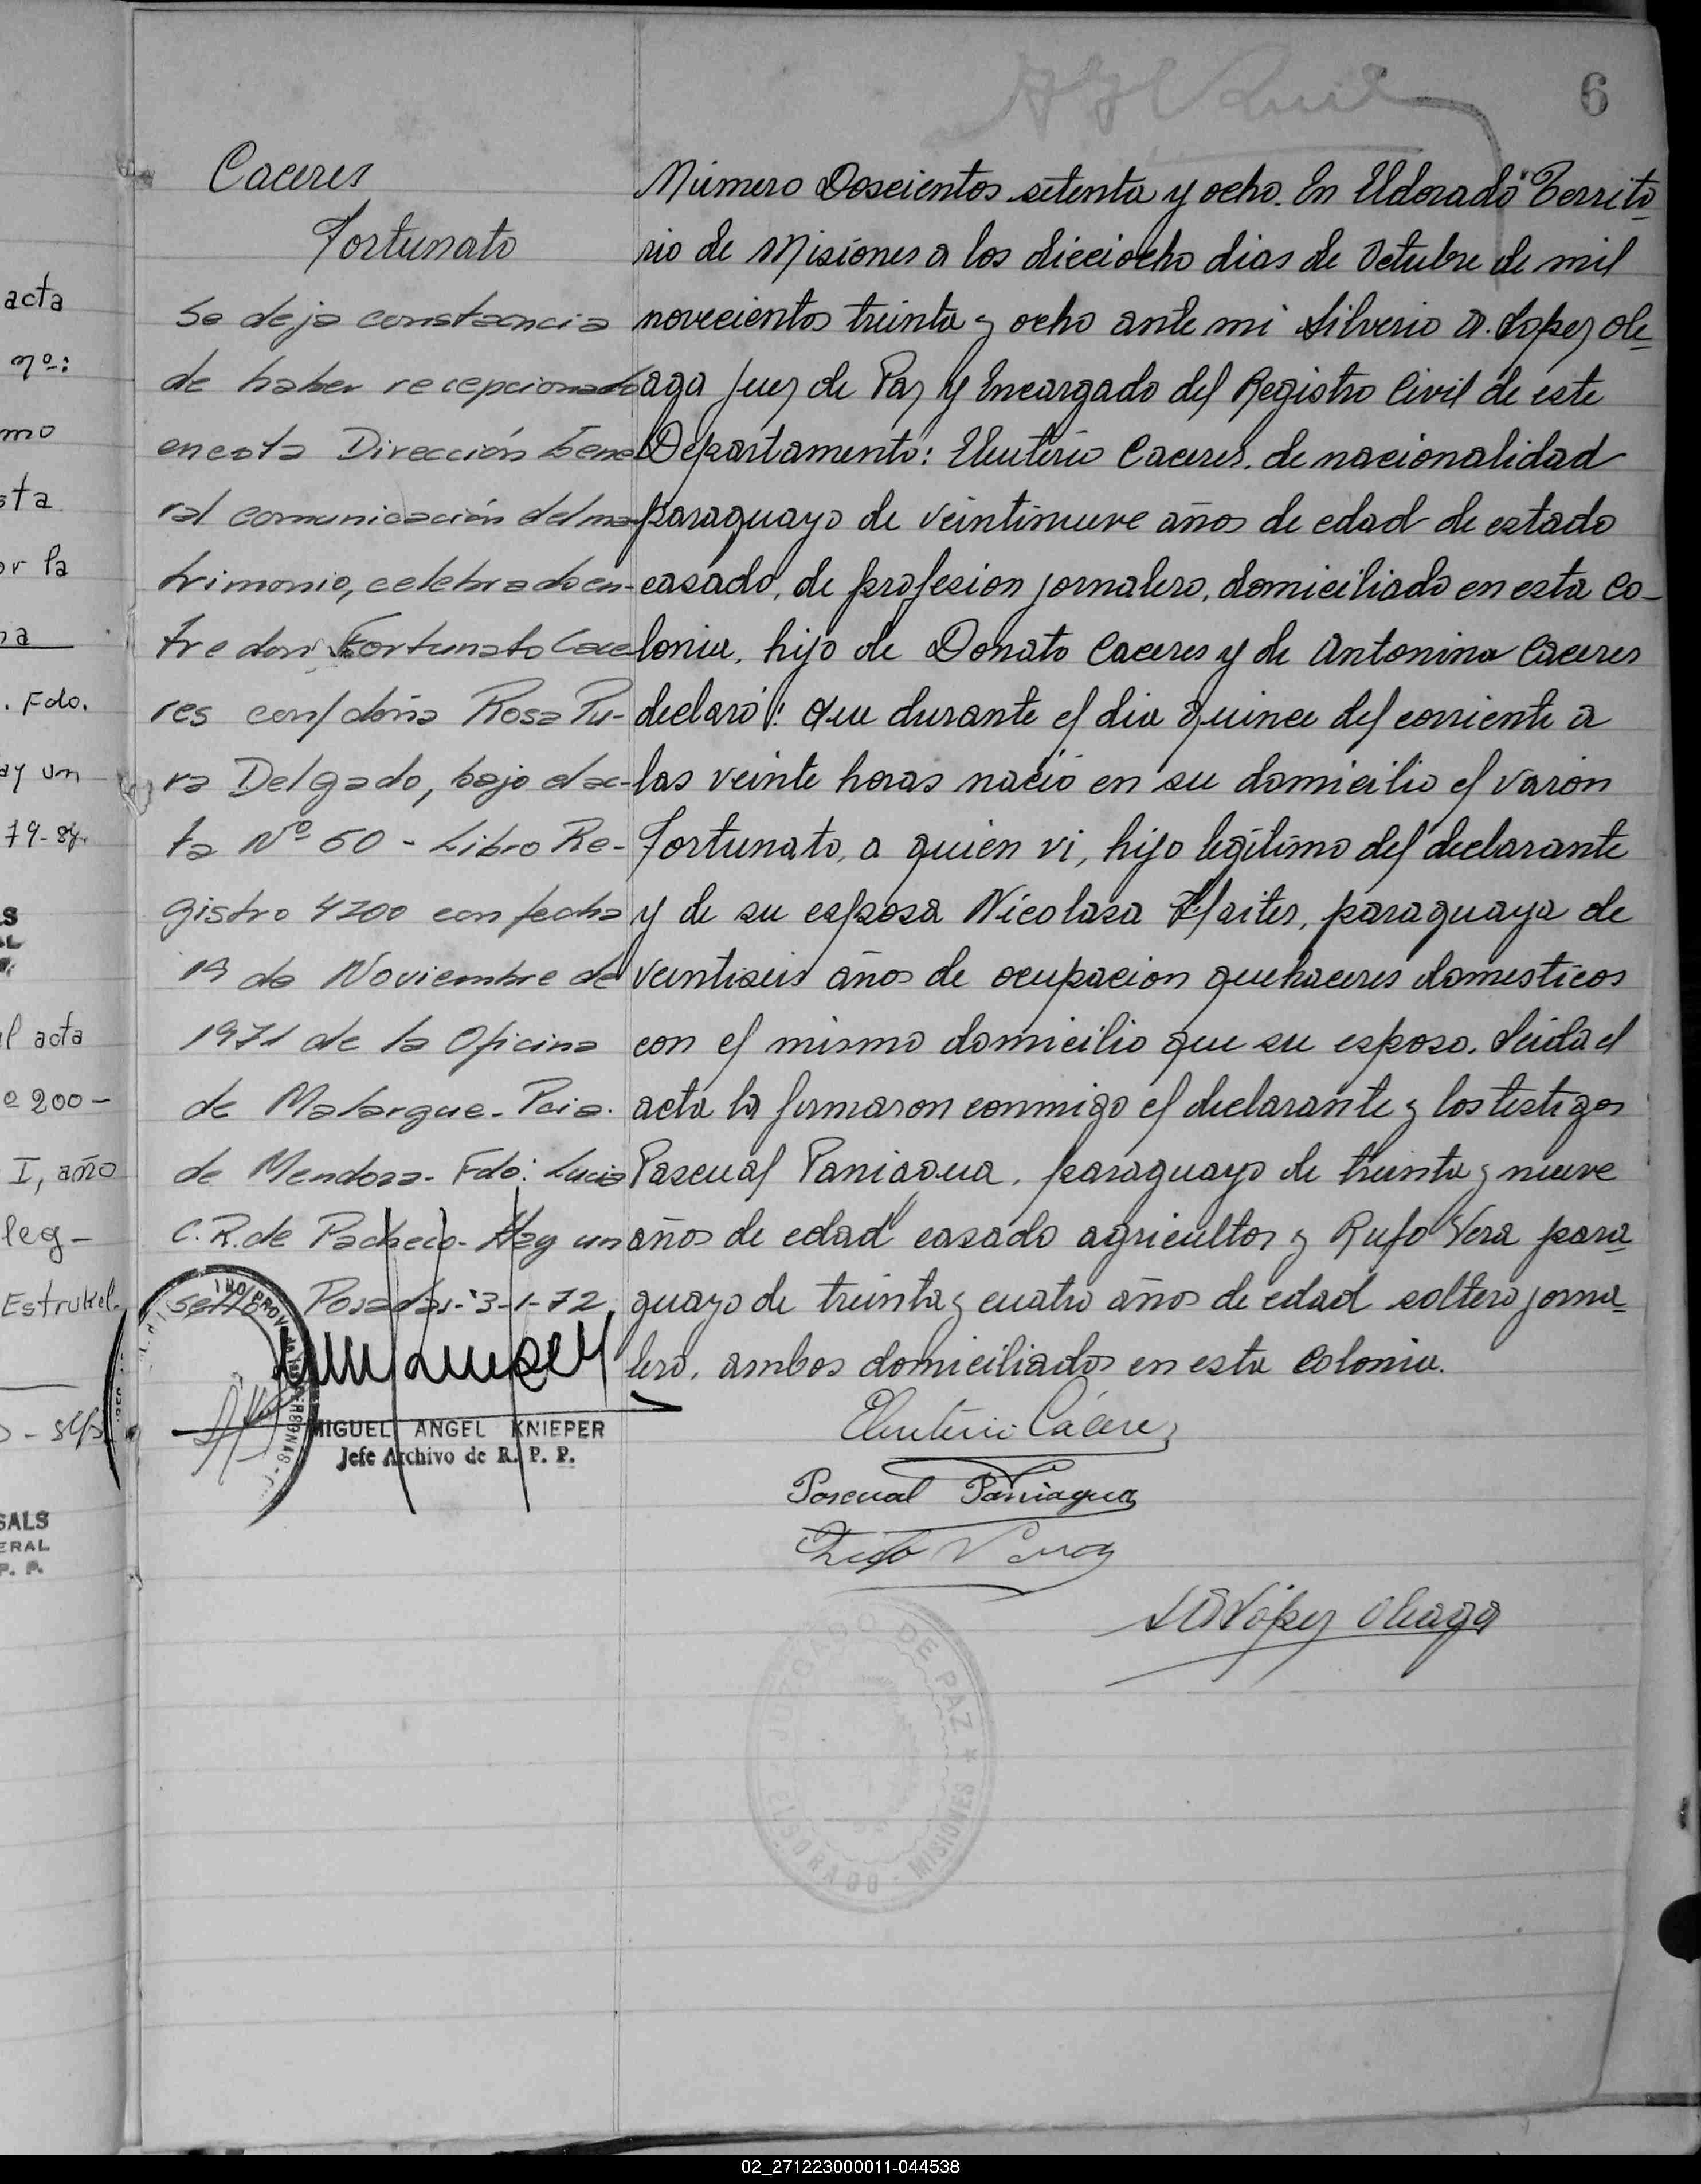 6
Caceres
Fortunato
Se deja constancia
de haber recepcionado
en esta Dirección Gene
ral comunicación del ma-
trimonio, celebrado en-
tre don Fortunato Cace
res con doña Rosa Pu-
ra Delgado, bajo el ac-
ta Nº 60 - Libro Re-
gistro 4200 con fecha
19 de Noviembre de
1971 de la Oficina
de Malargue - Pcia.
de Mendoza - Fdo: Lucia
C. R. de Pacheco - Hay un
sello Posadas - 3-1-72
MIGUEL ANGEL KNIEPER
Jefe Archivo de R. P. P.
Número Doscientos setenta y ocho. En Eldorado Territo
rio de Misiones a los dieciocho dias de Octubre de mil
novecientos treinta y ocho ante mi Silverio A. Lopez Ole
aga Juez de Paz y Encargado del Registro Civil de este
Departamento: Eleuterio Caceres, de nacionalidad
paraguayo de veintinueve años de edad de estado
casado, de profesion jornalero, domiciliado en esta Co-
lonia, hijo de Donato Caceres y de Antonina Caceres
declaró: Que durante el dia quince del corriente a
las veinte horas nació en su domicilio el varon
Fortunato, a quien vi, hijo legítimo del declarante
y de su esposa Nicolasa, paraguaya de
veintiseis años de ocupacion quehaceres domesticos
con el mismo domicilio que su esposo. Leida el
acta la firmaron conmigo el declarante y los testigos
Pascual Paniagua, paraguayo de treinta y nueve
años de edad casado agricultor y Rufo Vera para
guayo de treinta y cuatro años de edad soltero jorna
lero, ambos domiciliados en esta Colonia.
Eleuterio Cácere
Pascual Paniagua
S A López Oleaga
JUZGADO DE PAZ * ELDORADO - MISIONES
acta
nº:
mo
sta
or la
na
. Fdo.
ay un
79-84.
l acta
e 200-
I, año
leg-
Estrukel.
SALS
ERAL
P. P.
02_271223000011-044538